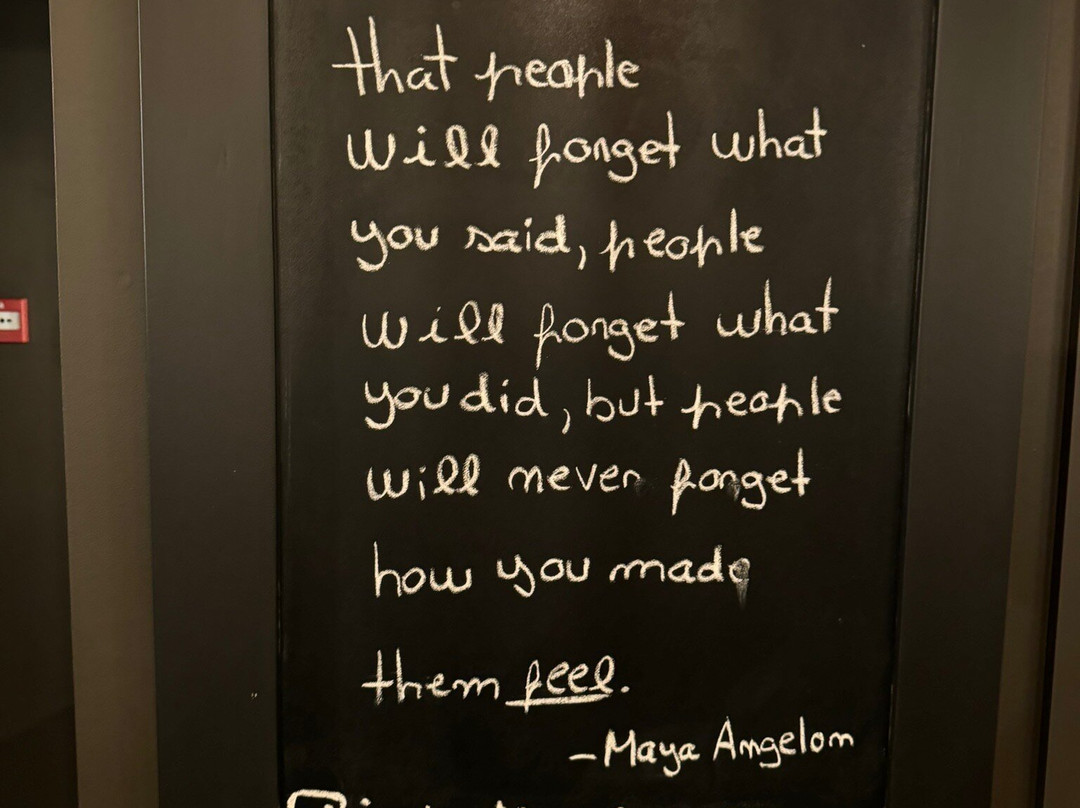 that people
will forget what
you said, people
will forget what
you did, but people
will never forget
how you made
them feel.
-Maya Angelom